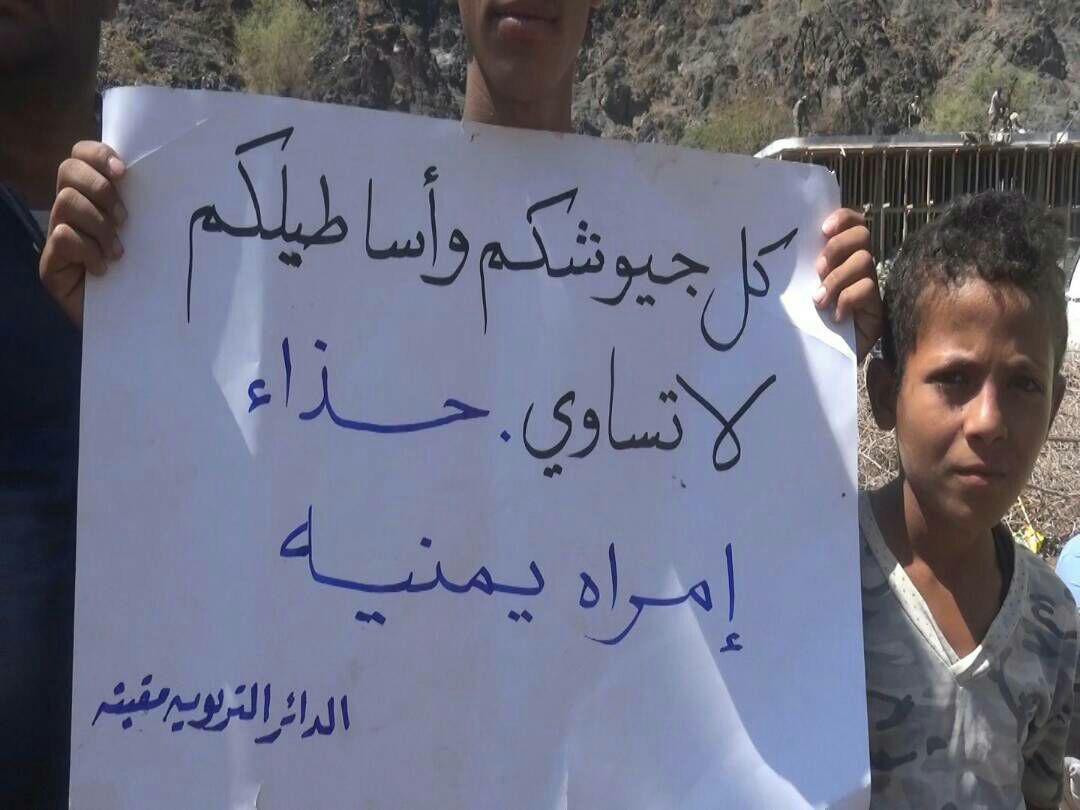 كل جيوشكم وأساطيلكم
لا تساوي . حذاء
إمراه يمنيه
الدائر التربويه مقبنه